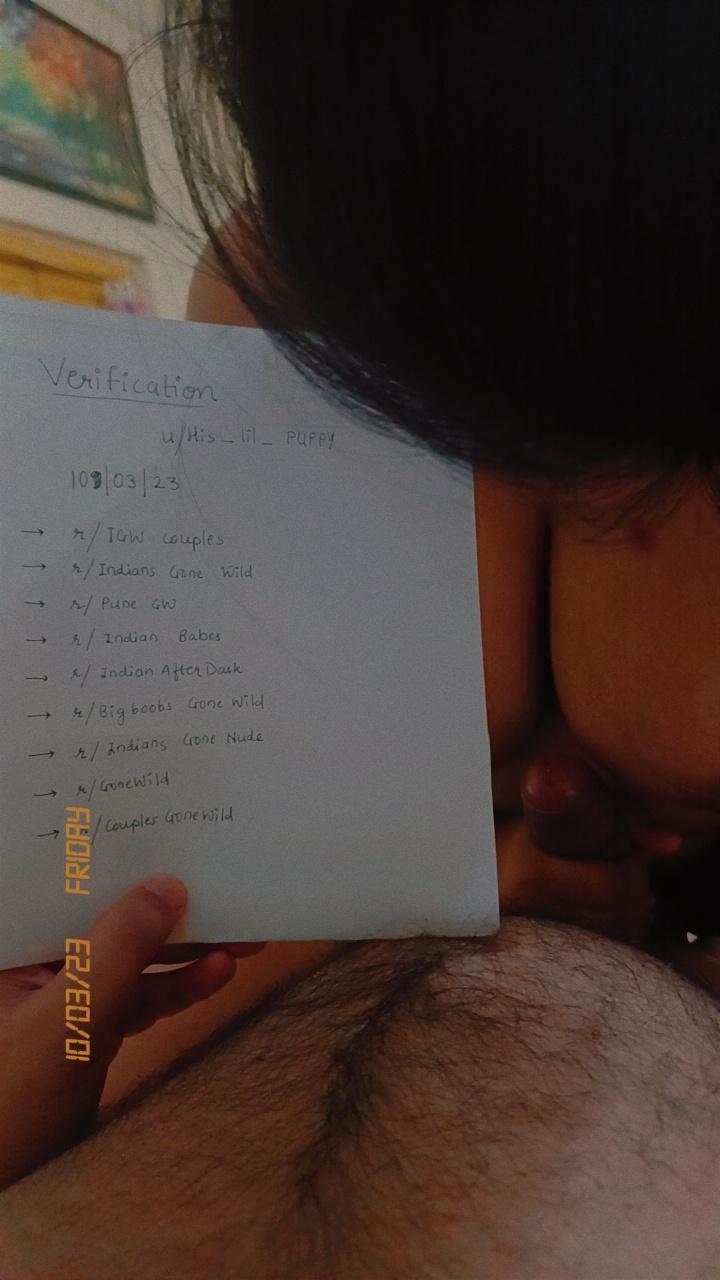 Verification
u/His_lil_ PUPPY
109/03/23
→ r/IGW Couples
→ r/Indians Gone Wild
→ r/Pune GW
→ r/Indian Babes
→ r/Indian After Dark
→ r/Big boobs Gone Wild
→ r/Indians Gone Nude
→ r/GoneWild
→ r/Couples Gone Wild
10/03/23 FRIDAY